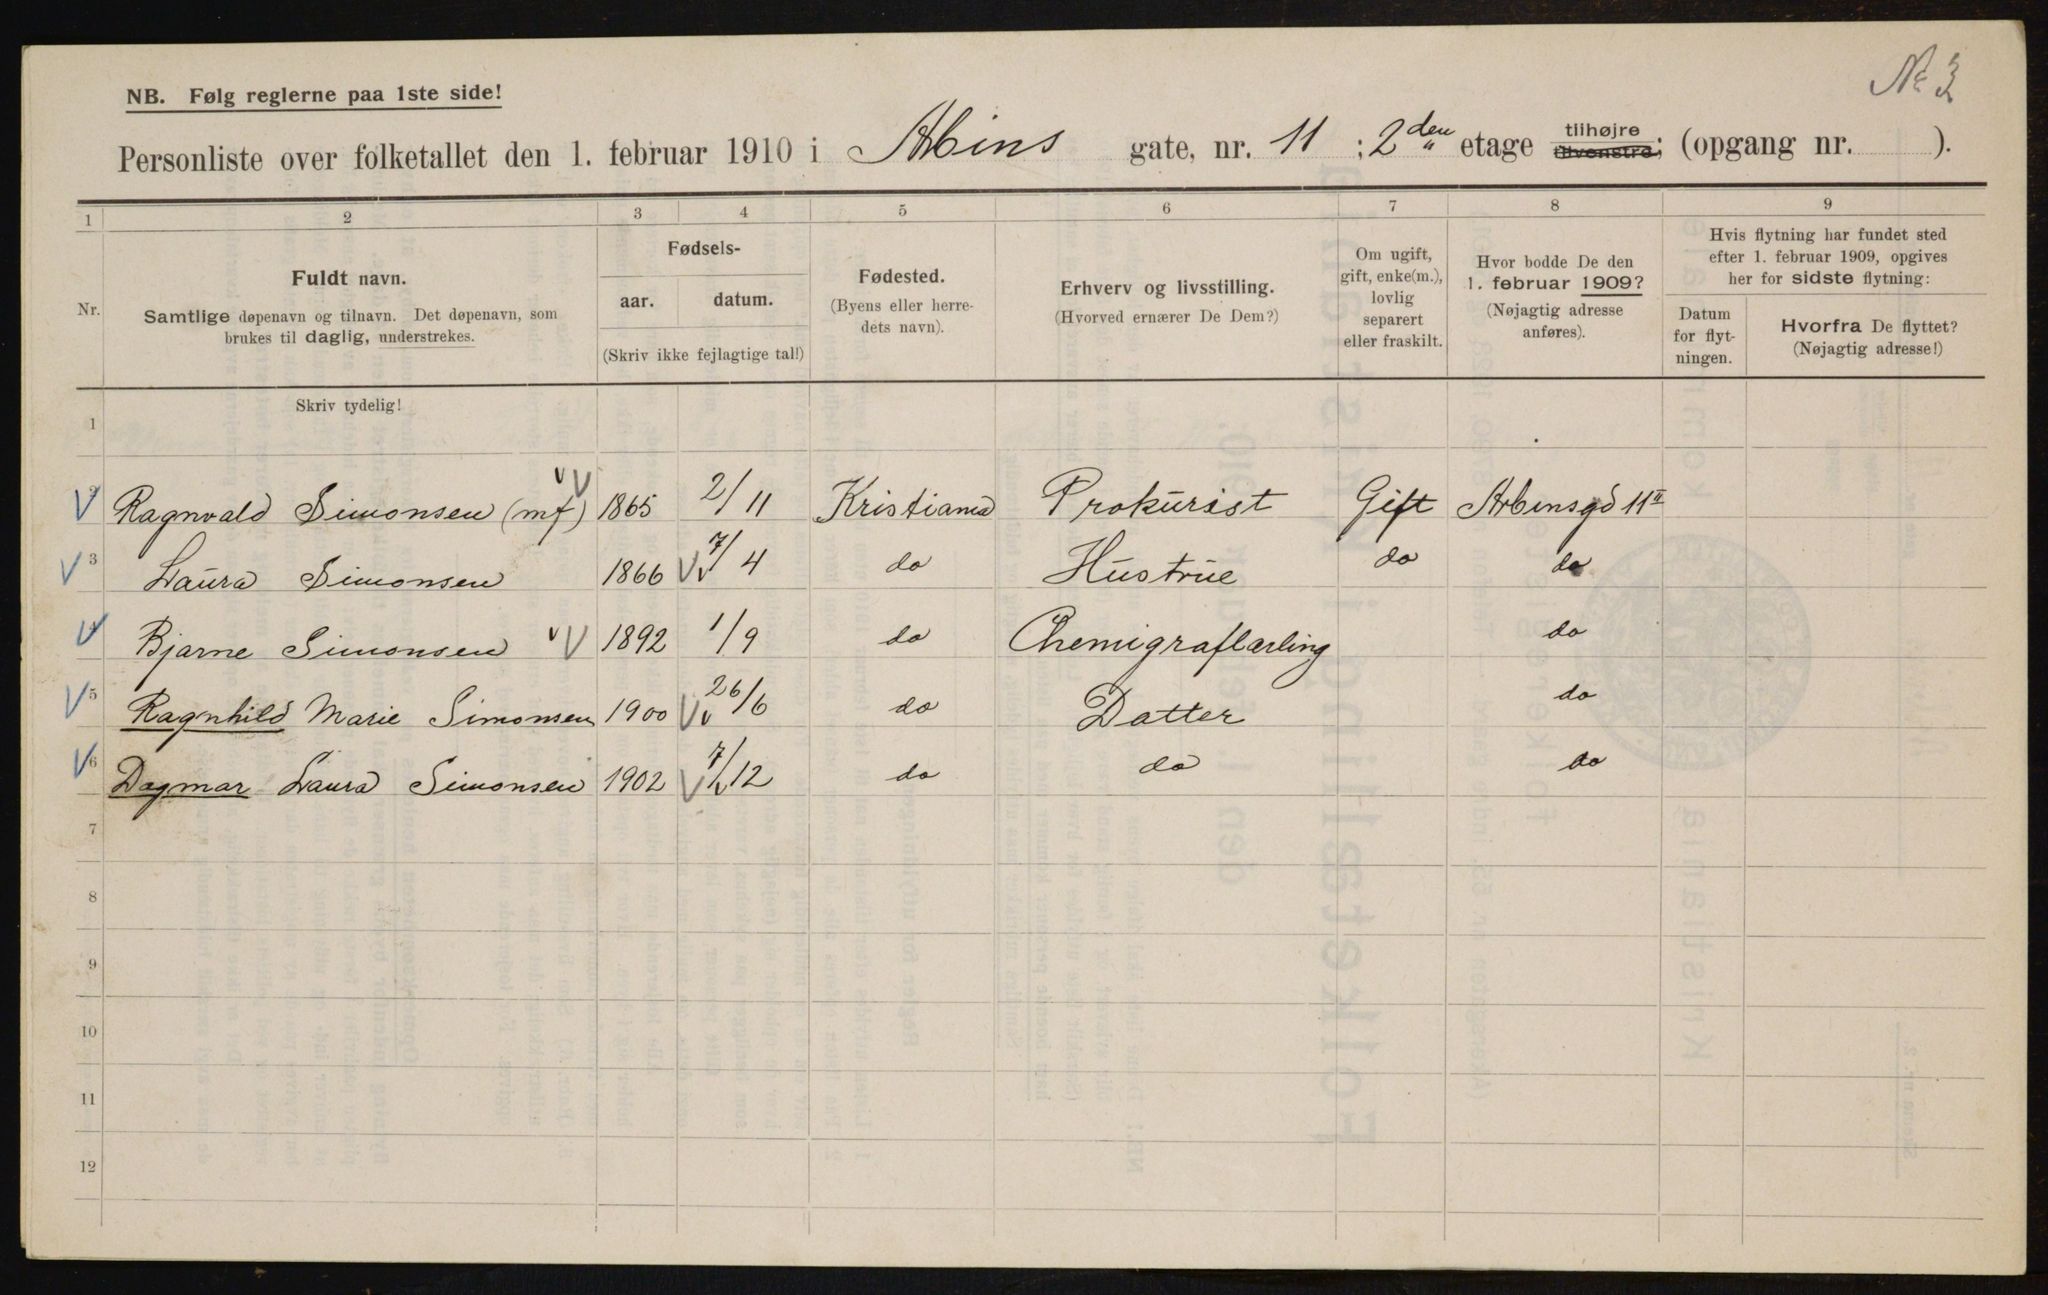 No 3
NB. Følg reglerne paa 1ste side!
Personliste over folketallet den 1. februar 1910 i Arbins gate, nr. 11 ; 2den etage tilhøjre tilvenstre; (opgang nr. ).
1 2 3 4 5 6 7 8 9
Nr.
Fuldt navn.
Samtlige døpenavn og tilnavn. Det døpenavn, som
brukes til daglig, understrekes.
Fødsels-
aar. datum.
(Skriv ikke fejlagtige tal!)
Fødested.
(Byens eller herre-
dets navn).
Erhverv og livsstilling.
(Hvorved ernærer De Dem?)
Om ugift,
gift, enke(m.),
lovlig
separert
eller fraskilt.
Hvor bodde De den
1. februar 1909?
(Nøjagtig adresse
anføres).
Hvis flytning har fundet sted
efter 1. februar 1909, opgives
her for sidste flytning:
Datum
for flyt-
ningen.
Hvorfra De flyttet?
(Nøjagtig adresse!)
Skriv tydelig!
1
2 Ragnvald Simonsen (mf) 1865 2/11 Kristiania Prokurist Gift Arbinsgd 11 II
3 Laura Simonsen 1866 7/4 do Hustrue do do
4 Bjarne Simonsen 1892 1/9 do Chemigraflærling do
5 Ragnhild Marie Simonsen 1900 26/6 do Datter do
6 Dagmar Laura Simonsen 1902 7/12 do do do
7
8
9
10
11
12